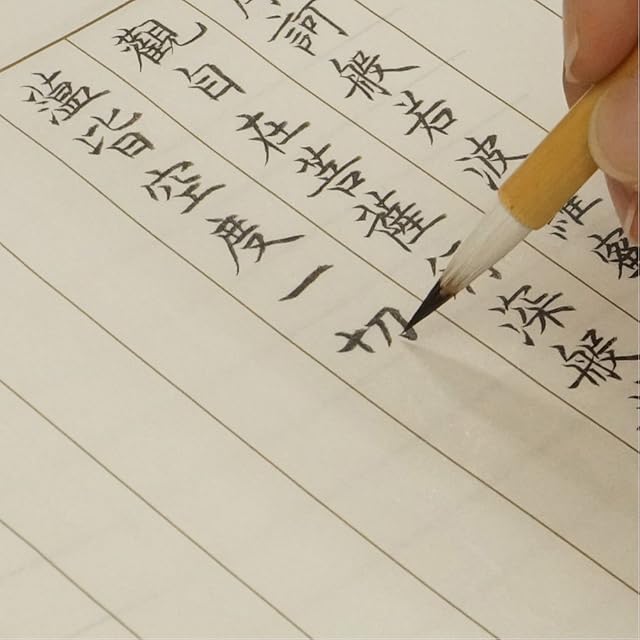 訶般若波羅蜜
觀自在菩薩行深般
蘊皆空度一切